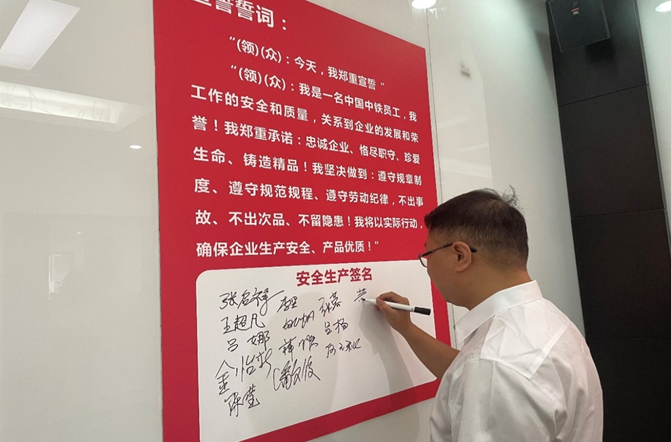 宣誓誓词：
“(领)(众)：今天，我郑重宣誓”
“(领)(众)：我是一名中国中铁员工，我
工作的安全和质量，关系到企业的发展和荣
誉！我郑重承诺：忠诚企业、恪尽职守、珍爱
生命、铸造精品！我坚决做到：遵守规章制
度、遵守规范规程、遵守劳动纪律，不出事
故、不出次品、不留隐患！我将以实际行动，
确保企业生产安全、产品优质！”
安全生产签名
王超凡
吕娜 吕杨
陈莹